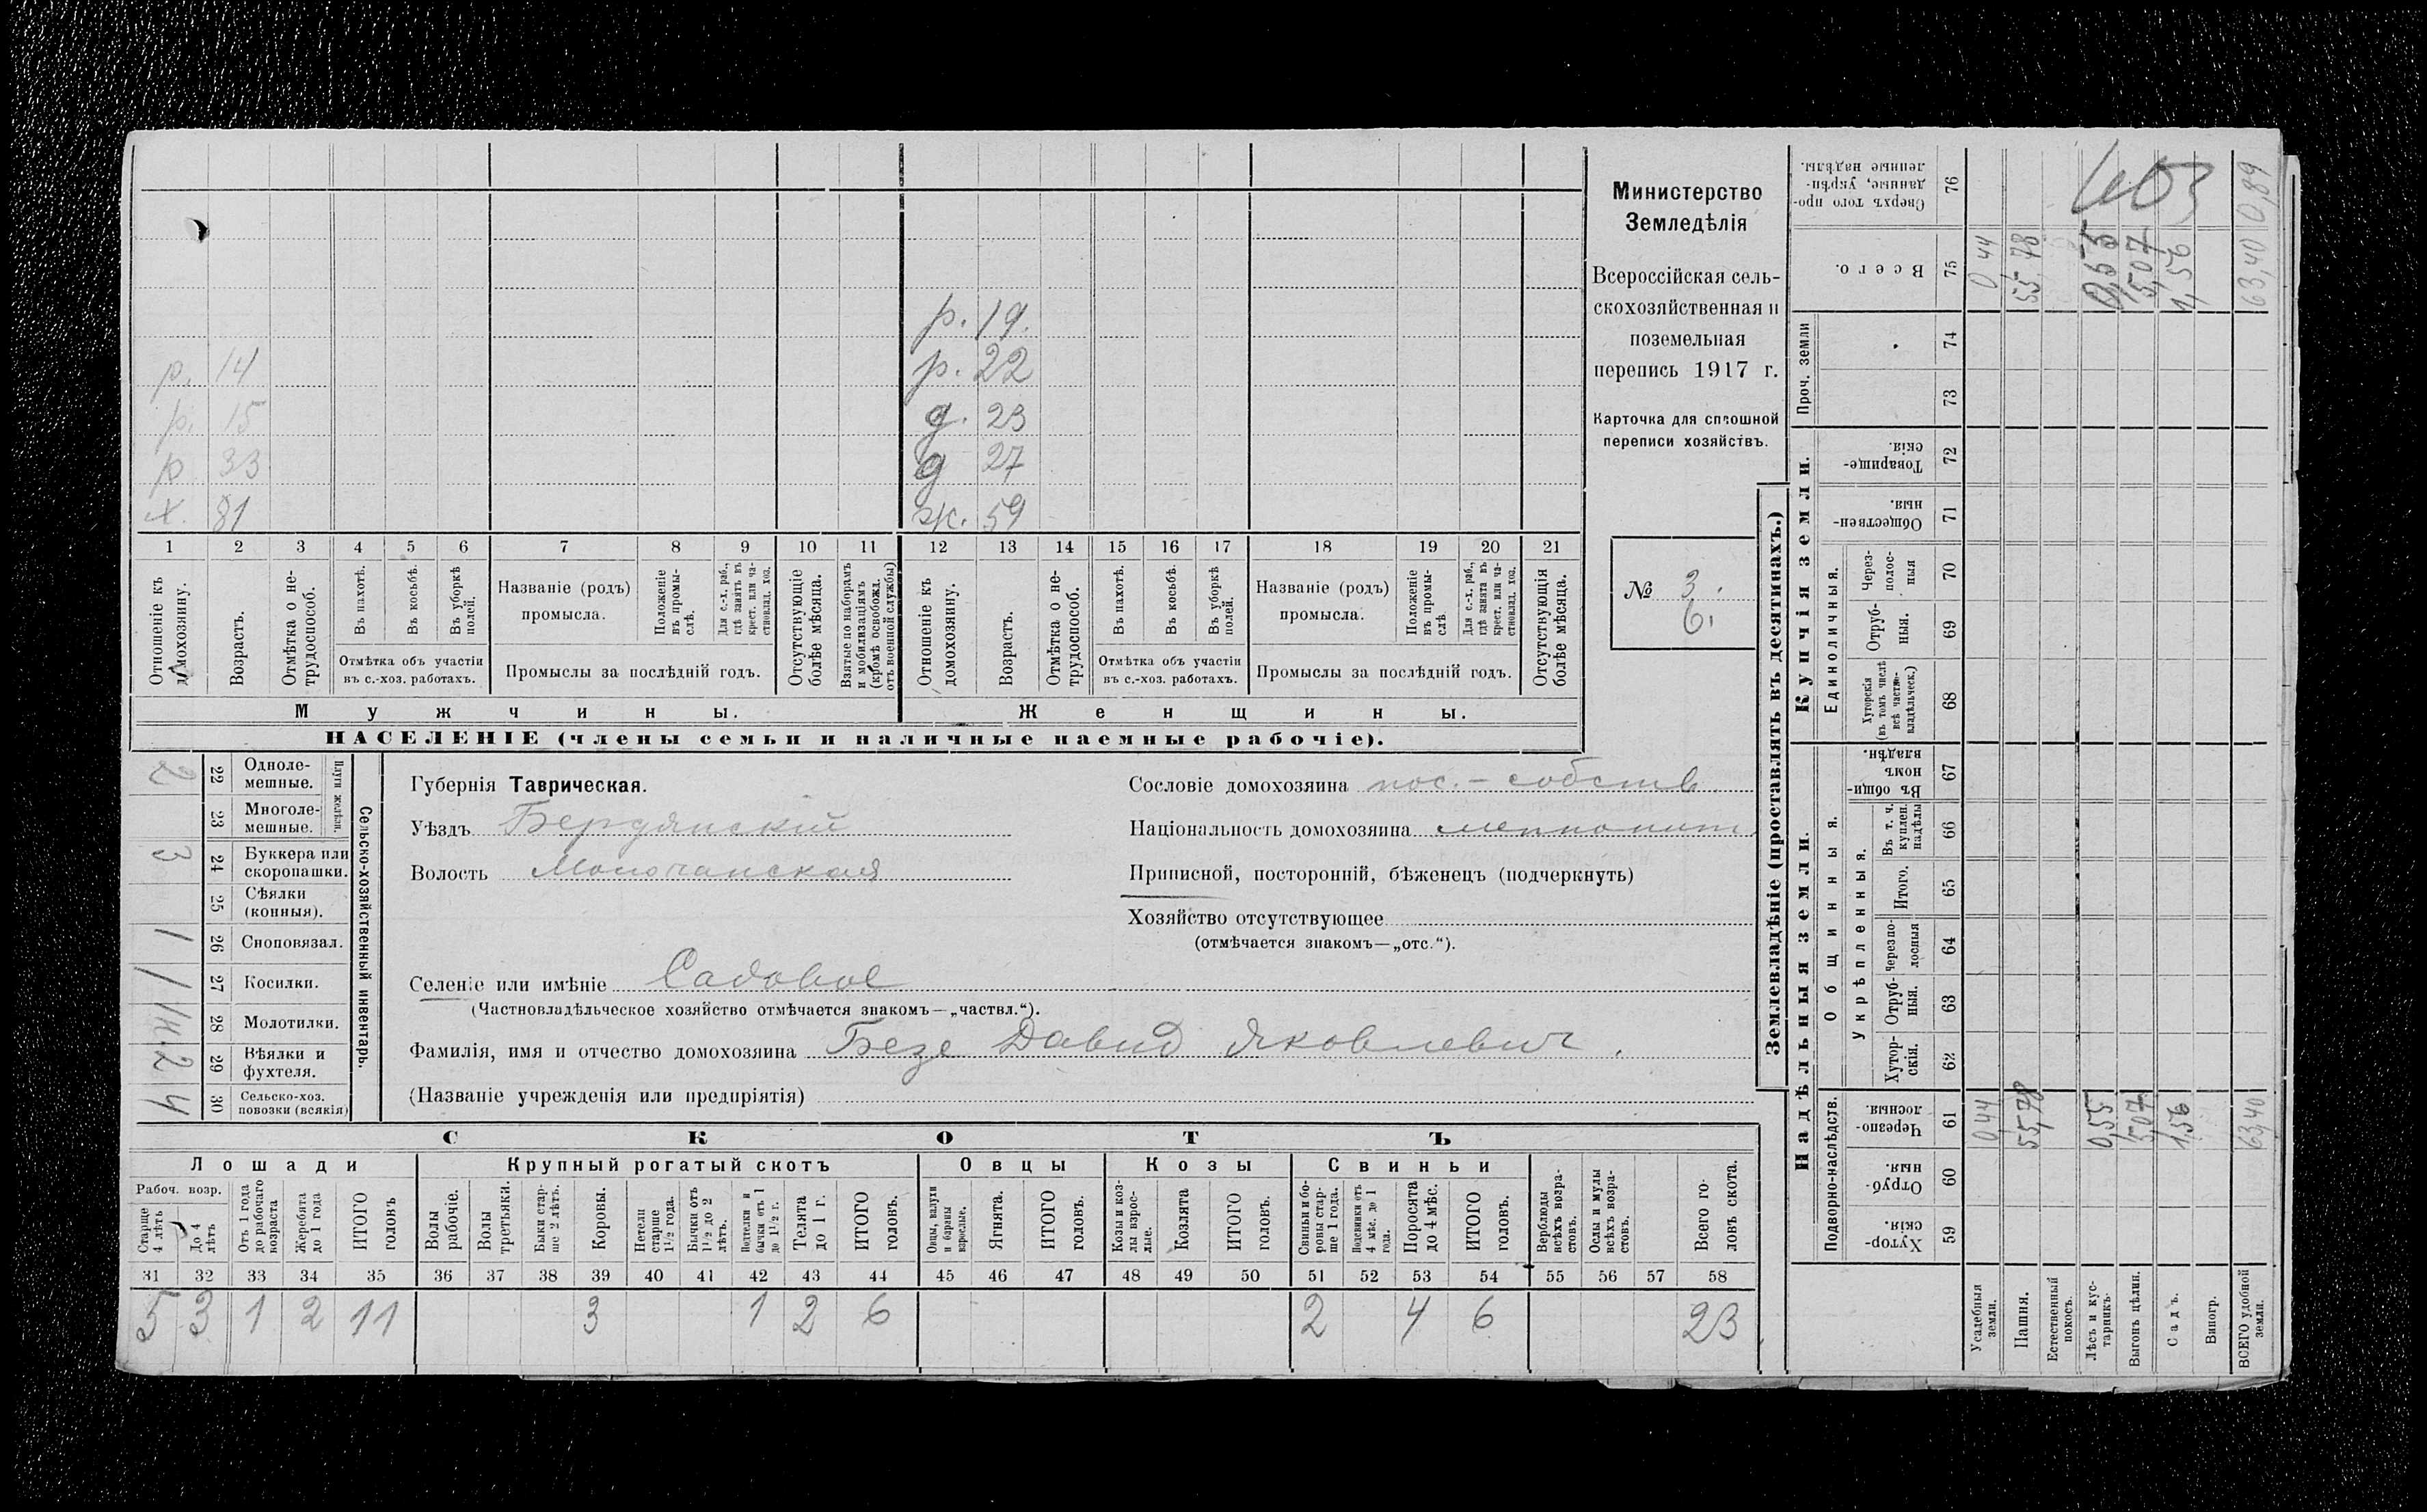 р. 19.
р. 14 р. 22
р. 15 д. 23
р 33 д 27
х. 81 ж. 59
1 2 3 4 5 6 7 8 9 10 11 12 13 14 15 16 17 18 19 20 21
Отношеніе къ домохозяину.
Возрастъ.
Отмѣтка о нетрудоспособ.
Въ пахотѣ.
Въ косьбѣ.
Въ уборкѣ полей.
Отмѣтка объ участіи
въ с.-хоз. работахъ.
Названіе (родъ)
промысла.
Положеніе въ промыслѣ.
Для с.-х. раб., гдѣ занятъ въ крест. или частновлад. хоз.
Промыслы за послѣдній годъ.
Отсутствующіе болѣе мѣсяца.
Взятые по наборамъ и мобилизаціямъ (кромѣ освобожд. отъ военной службы)
Отношеніе къ домохозяину.
Возрастъ.
Отмѣтка о нетрудоспособ.
Въ пахотѣ.
Въ косьбѣ.
Въ уборкѣ полей.
Отмѣтка объ участіи
въ с.-хоз. работахъ.
Названіе (родъ)
промысла.
Положеніе въ промыслѣ
Для с.-х. раб., гдѣ занята въ крест. или частновлад. хоз.
Промыслы за послѣдній годъ.
Отсутствующія болѣе мѣсяца.
Мужчины. Женщины.
НАСЕЛЕНІЕ (члены семьи и наличные наемные рабочіе).
Министерство
Земледѣлія
Всероссійская сель-
скохозяйственная и
поземельная
перепись 1917 г.
Карточка для сплошной
переписи хозяйствъ.
№ 3.
6.
Сельско-хозяйственный инвентарь.
Плуги желѣзн.
2 22 Одноле-
мешные.
23 Многоле-
мешные.
3 24 Буккера или
скоропашки.
25 Сѣялки
(конныя).
1 26 Сноповязал.
1 27 Косилки.
28 Молотилки.
2 29 Вѣялки и
фухтеля.
4 30 Сельско-хоз.
повозки (всякія)
Губернія Таврическая.
Уѣздъ Бердянскій
Волость Молочанская
Сословіе домохозяина пос.-собств.
Національность домохозяина меннонит
Приписной, посторонній, бѣженецъ (подчеркнуть)
Хозяйство отсутствующее
(отмѣчается знакомъ—„отс.“).
Селеніе или имѣніе Садовое
(Частновладѣльческое хозяйство отмѣчается знакомъ—„частвл.“).
Фамилія, имя и отчество домохозяина Безе Давид Яковлевич.
(Названіе учрежденія или предпріятія)
СКОТЪ
Лошади Крупный рогатый скотъ Овцы Козы Свиньи
Рабоч. возр.
Старше 4 лѣтъ
До 4 лѣтъ
Отъ 1 года до рабочаго возраста
Жеребята до 1 года
ИТОГО головъ
Волы рабочіе.
Волы третьяки.
Быки старше 2 лѣтъ.
Коровы.
Нетели старше 1½ года.
Бычки отъ 1½ до 2 лѣтъ.
Подтелки и бычки отъ 1 до 1½ г.
Телята до 1 г.
ИТОГО головъ.
Овцы, валухи и бараны взрослые.
Ягнята.
ИТОГО головъ.
Козы и козлы взрослые.
Козлята
ИТОГО головъ.
Свиньи и боровы старше 1 года.
Подсвинки отъ 4 мѣс. до 1 года.
Поросята до 4 мѣс.
ИТОГО головъ.
Верблюды всѣхъ возрастовъ.
Ослы и мулы всѣхъ возрастовъ.
Всего головъ скота.
31 32 33 34 35 36 37 38 39 40 41 42 43 44 45 46 47 48 49 50 51 52 53 54 55 56 57 58
5 3 1 2 11 3 1 2 6 2 4 6 23
Землевладѣніе (проставлять въ десятинахъ.)
Надѣльныя земли. Купчія земли.
Подворно-наслѣдств.
Общинныя.
Укрѣпленныя.
Единоличныя.
Проч. земли
Хуторскія 59
Отрубныя. 60
Черезполосныя. 61
Хуторскія. 62
Отрубныя. 63
Черезполосныя 64
Итого. 65
Въ т. ч. куплен. надѣлы 66
Въ общинномъ владѣн. 67
Хуторскія (въ томъ числѣ всѣ частновладѣльческ.) 68
Отрубныя. 69
Черезполосныя 70
Общественныя. 71
Товарищескія. 72
73
74
Всего. 75
Сверхъ того проданные, укрѣпленные надѣлы. 76
Усадебныя земли. 0,44 0 44
Пашня. 55,78 55,78
Естественный покосъ.
Лѣсъ и кустарникъ. 0,55 0,55
Выгонъ цѣлин. 5,07 5,07
Садъ. 1,56 1,56
Виногр.
ВСЕГО удобной земли. 63,40 63,40 0,89